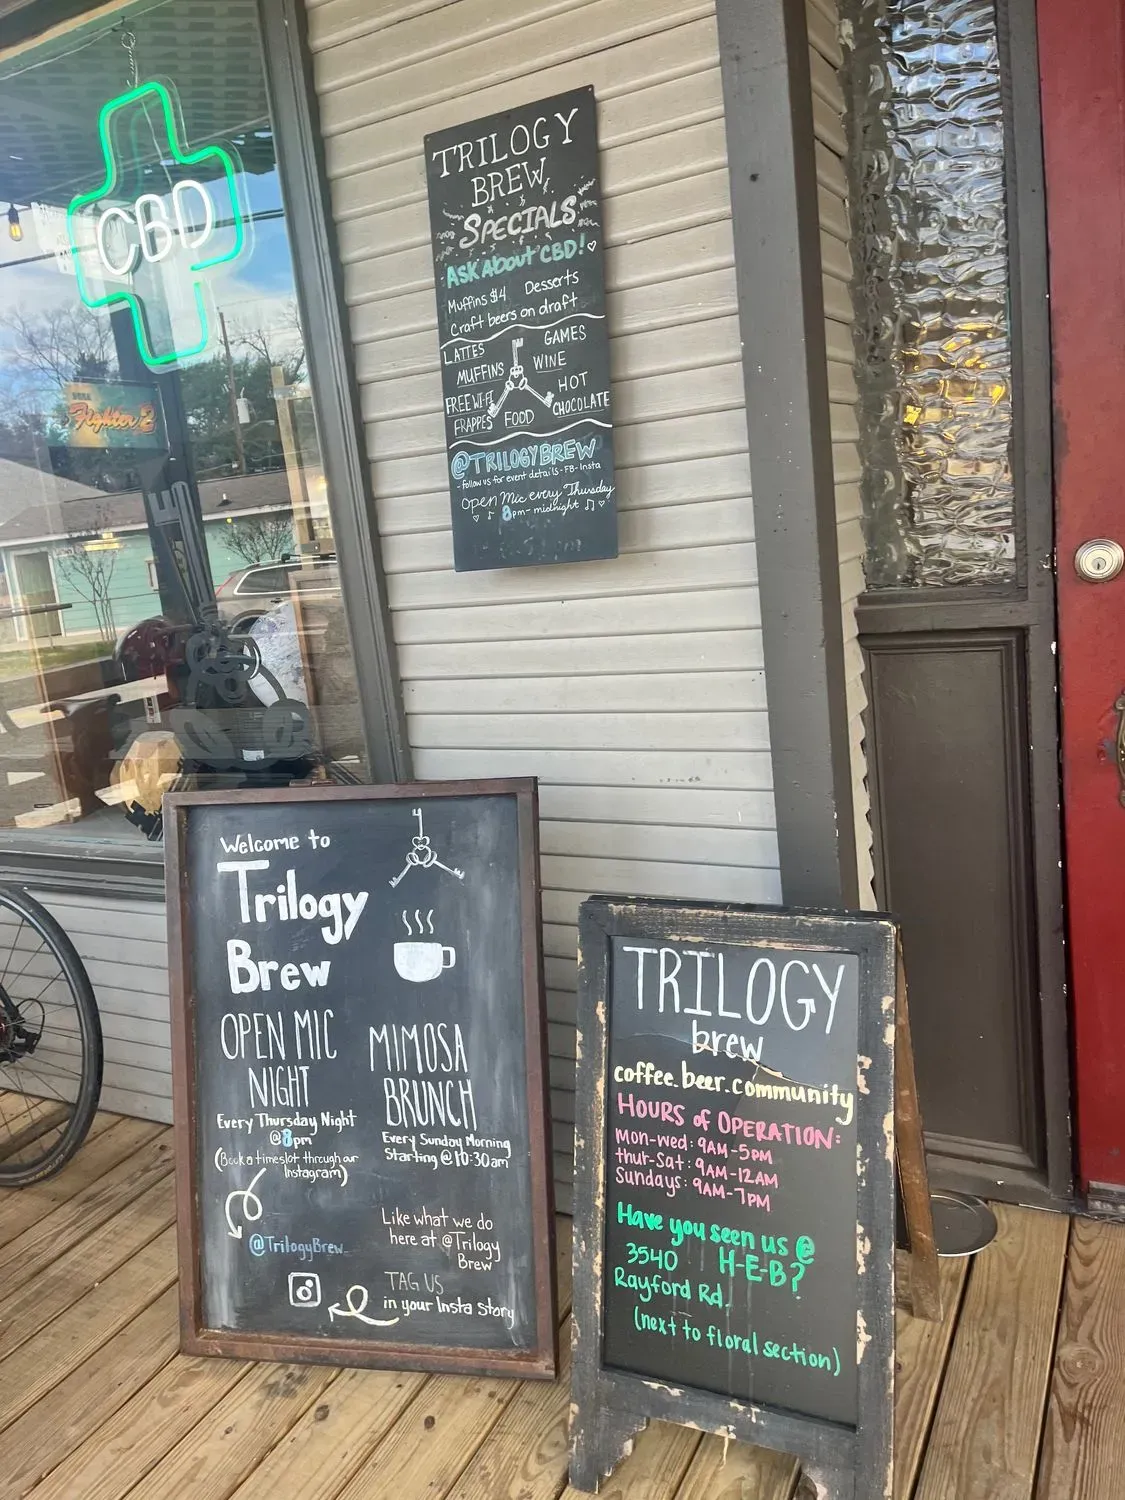 CBD
SEGA
Fighter 2
TRILOGY
BREW
SPECIALS
ASK About CBD!
Muffins $4 Desserts
Craft beers on draft
LATTES GAMES
MUFFINS WINE
FREE WI-FI HOT
CHOCOLATE
FRAPPES FOOD
@TRILOGYBREW
-follow us for event details - FB - Insta
Open Mic every Thursday
8pm - midnight
Welcome to
Trilogy
Brew
OPEN MIC
NIGHT
Every Thursday Night
@8pm
(Book a timeslot through our
Instagram)
@TrilogyBrew_
MIMOSA
BRUNCH
Every Sunday Morning
Starting @ 10:30am
Like what we do
here at @Trilogy
Brew
TAG US
in your Insta Story
TRILOGY
brew
coffee.beer.community
HOURS of OPERATION:
Mon-Wed: 9AM-5PM
thur-Sat: 9AM-12AM
Sundays: 9AM-7PM
Have you seen us @
3540 H-E-B?
Rayford Rd.
(next to floral section)